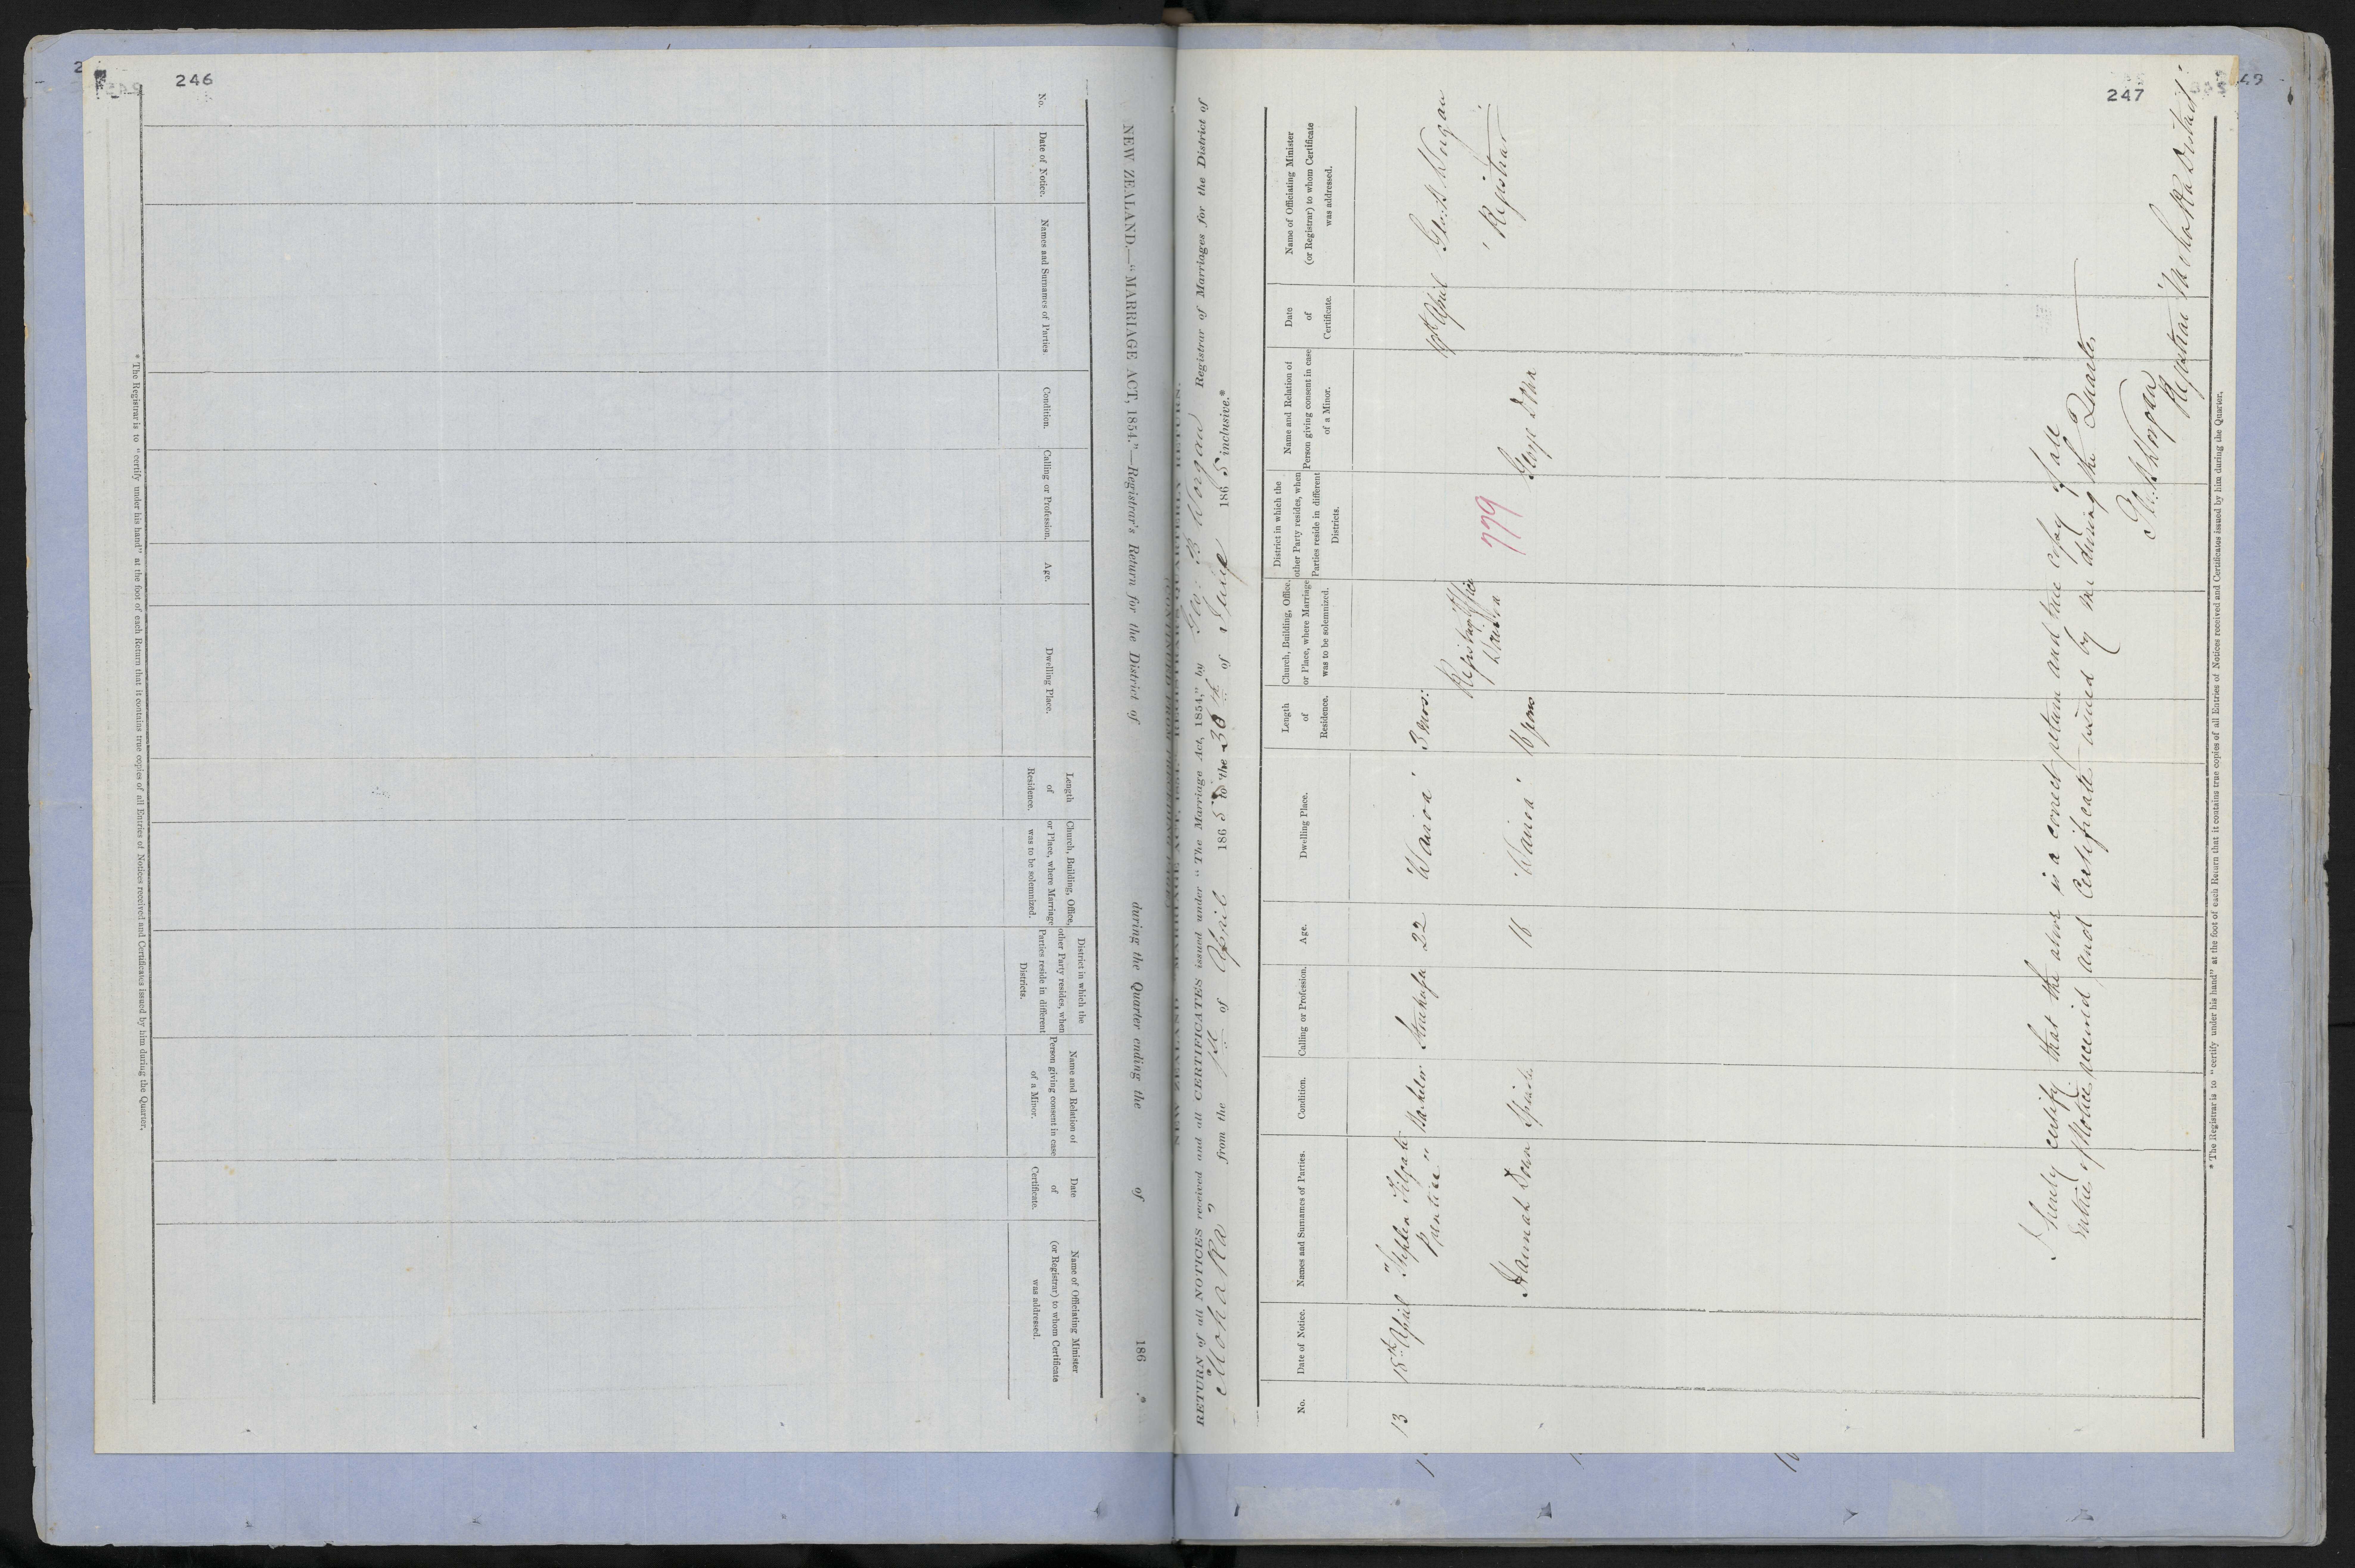 246
NEW ZEALAND.—"MARRIAGE ACT, 1854."—Registrar's Return for the District of during the Quarter ending the of 186 .*
No.
Date of Notice.
Names and Surnames of Parties.
Condition.
Calling or Profession.
Age.
Dwelling Place.
Length
of
Residence.
Church, Building, Office,
or Place, where Marriage
was to be solemnized.
District in which the
other Party resides, when
Parties reside in different
Districts.
Name and Relation of
Person giving consent in case
of a Minor.
Date
of
Certificate.
Name of Officiating Minister
(or Registrar) to whom Certificate
was addressed.
* The Registrar is to "certify under his hand" at the foot of each Return that it contains true copies of all Entries of Notices received and Certificates issued by him during the Quarter.
247
RETURN of all NOTICES received and all CERTIFICATES issued under "The Marriage Act, 1854," by Geo: B Worgan Registrar of Marriages for the District of
"Mohaka" from the 1st of April 1865 to the 30th of June 1865 inclusive.*
No.
Date of Notice.
Names and Surnames of Parties.
Condition.
Calling or Profession.
Age.
Dwelling Place.
Length
of
Residence.
Church, Building, Office,
or Place, where Marriage
was to be solemnized.
District in which the
other Party resides, when
Parties reside in different
Districts.
Name and Relation of
Person giving consent in case
of a Minor.
Date
of
Certificate.
Name of Officiating Minister
(or Registrar) to whom Certificate
was addressed.
13 15th April "Stephen Tilgate Bachelor 22 Wairoa 3 mos: April Geo: B Worgan
Prentice" Registrar's Office Registrar
Wairoa
779
Hannah Dorn 18 Wairoa George Dorn
I hereby certify that the above is a correct return and true copy of all
Entries of Notice received and Certificate issued by me during the Quarter,
Geo: B Worgan
Registrar Mohaka District
* The Registrar is to "certify under his hand" at the foot of each Return that it contains true copies of all Entries of Notices received and Certificates issued by him during the Quarter.